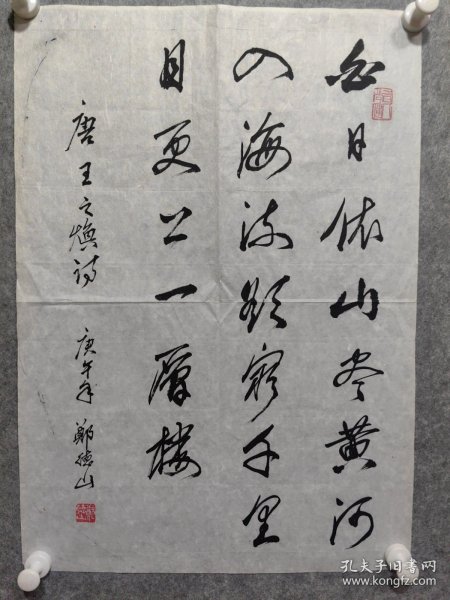 白日依山尽黄河
入海流欲穷千里
目更上一層楼
唐王之焕诗 庚午年 鄭德山
孔夫子旧书网
www.kongfz.com